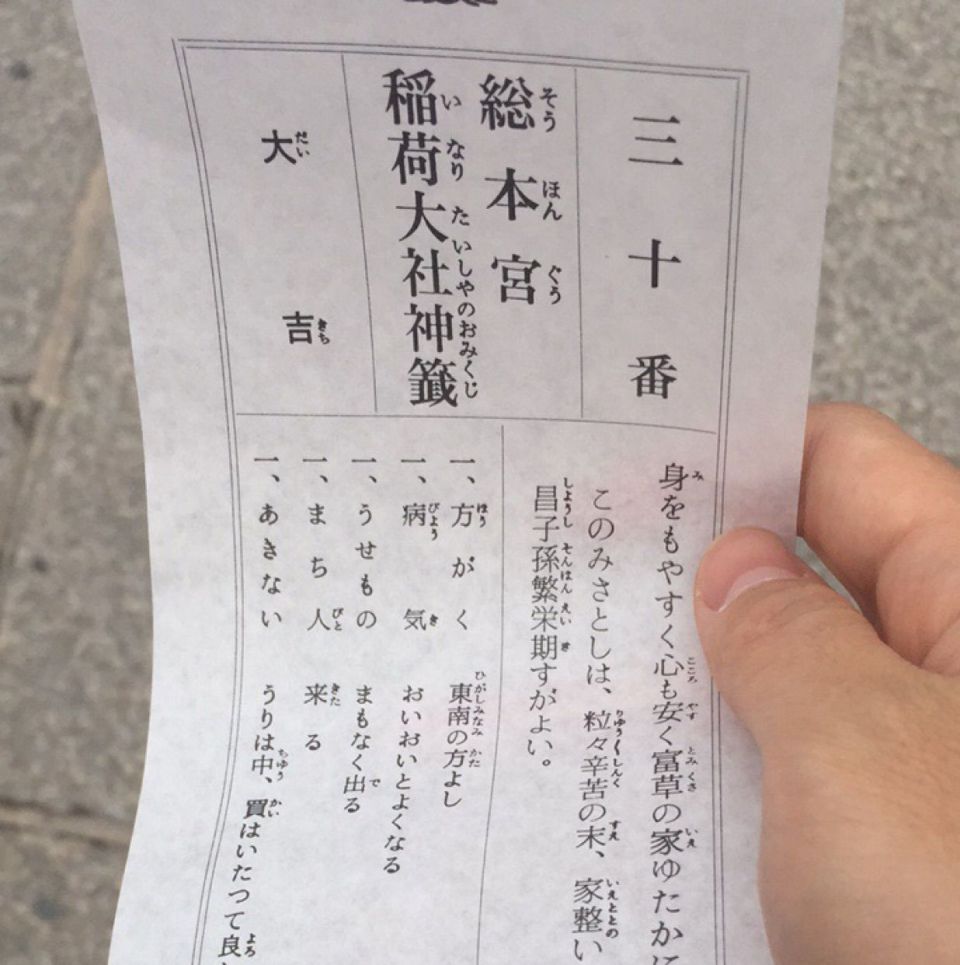 三十番
総本宮
稲荷大社神籤
大吉
身をもやすく心も安く富草の家ゆたかに
このみさとしは、粒々辛苦の末、家整い
昌子孫繁栄期すがよい。
一、方がく 東南の方よし
一、病気 おいおいとよくなる
一、うせもの まもなく出る
一、まち人 来る
一、あきない うりは中、買はいたつて良